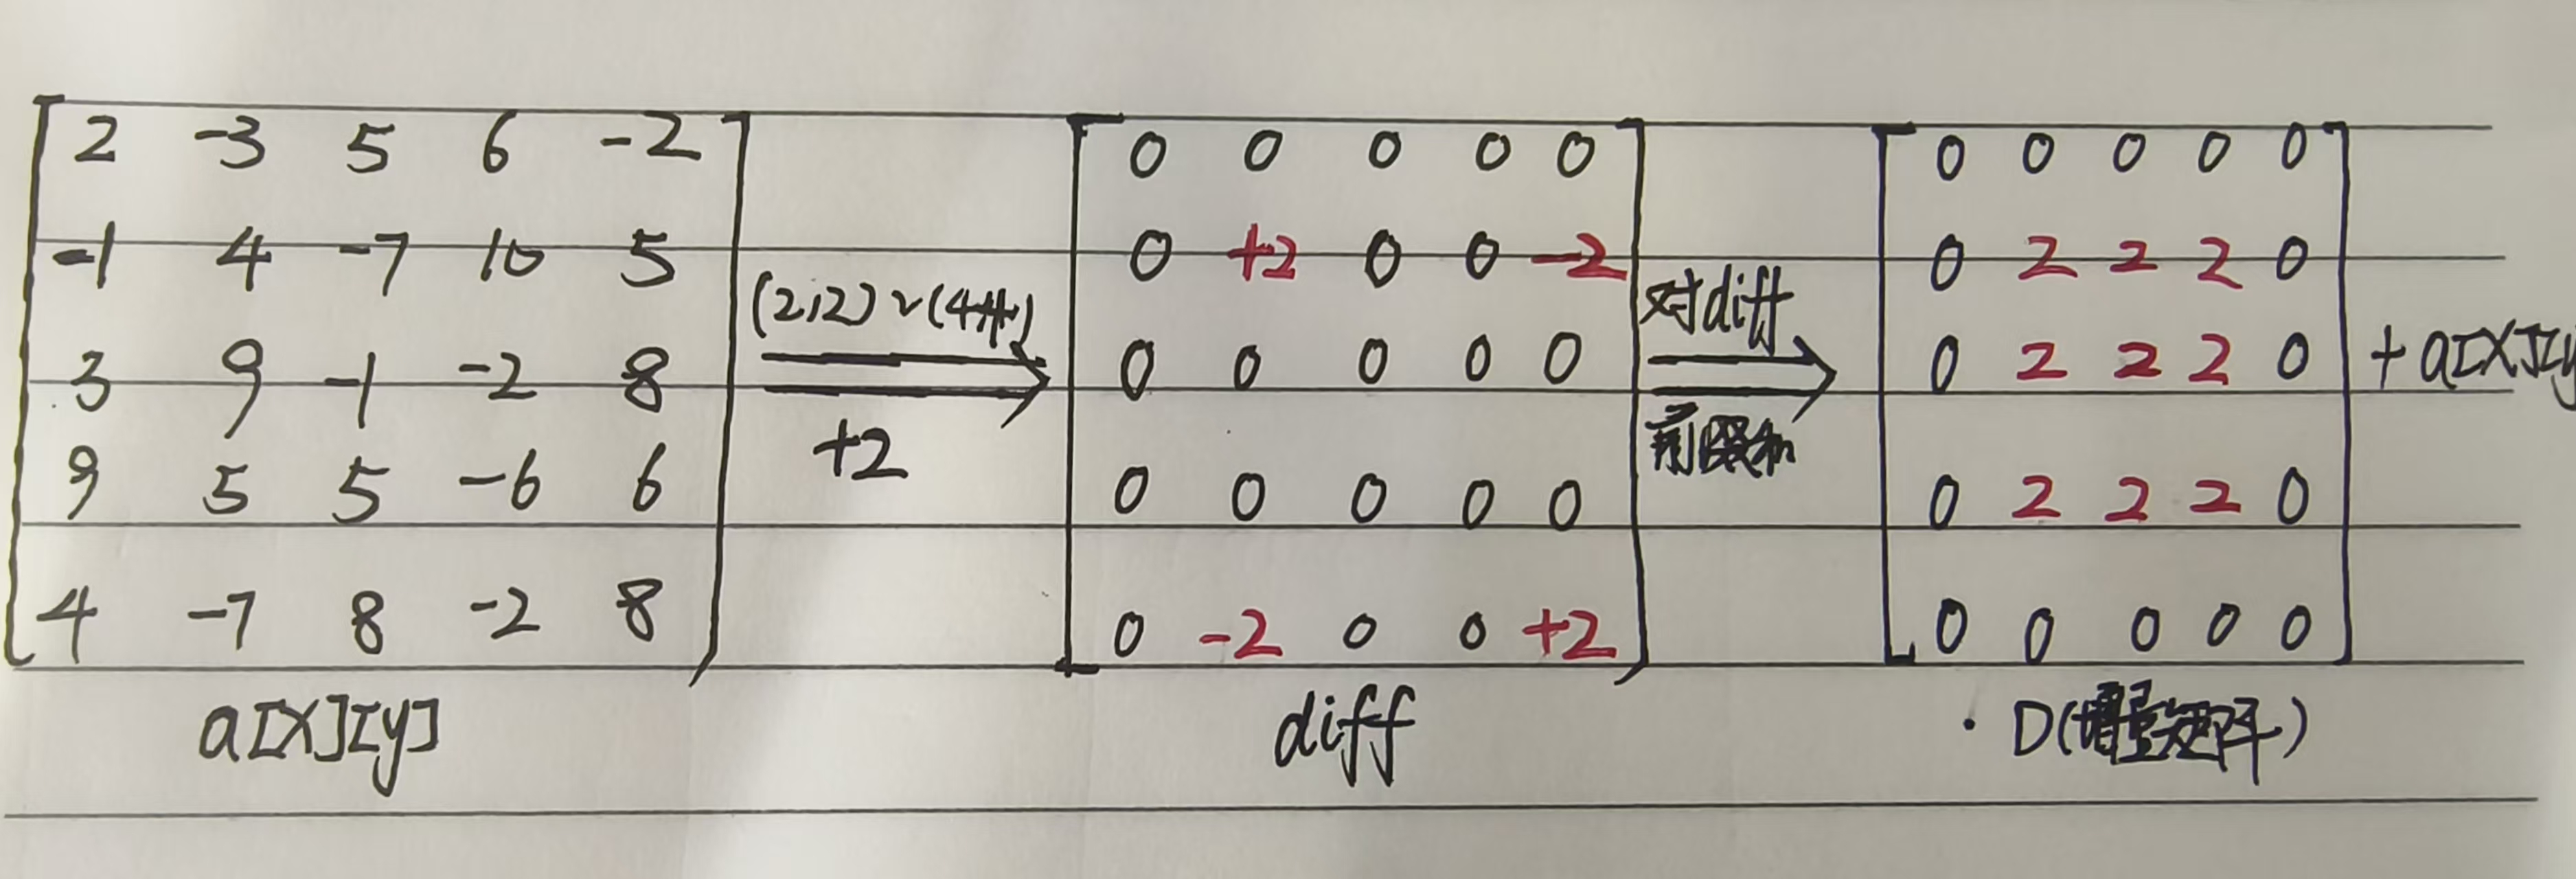 2 -3 5 6 -2 0 0 0 0 0 0 0 0 0 0
-1 4 -7 10 5 0 +2 0 0 -2 0 2 2 2 0
(2,2)~(4,4) 对diff
3 9 -1 -2 8 0 0 0 0 0 0 2 2 2 0 + a[X][y
+2 前缀和
9 5 5 -6 6 0 0 0 0 0 0 2 2 2 0
4 -7 8 -2 8 0 -2 0 0 +2 0 0 0 0 0
a[X][y] diff D(增量矩阵)